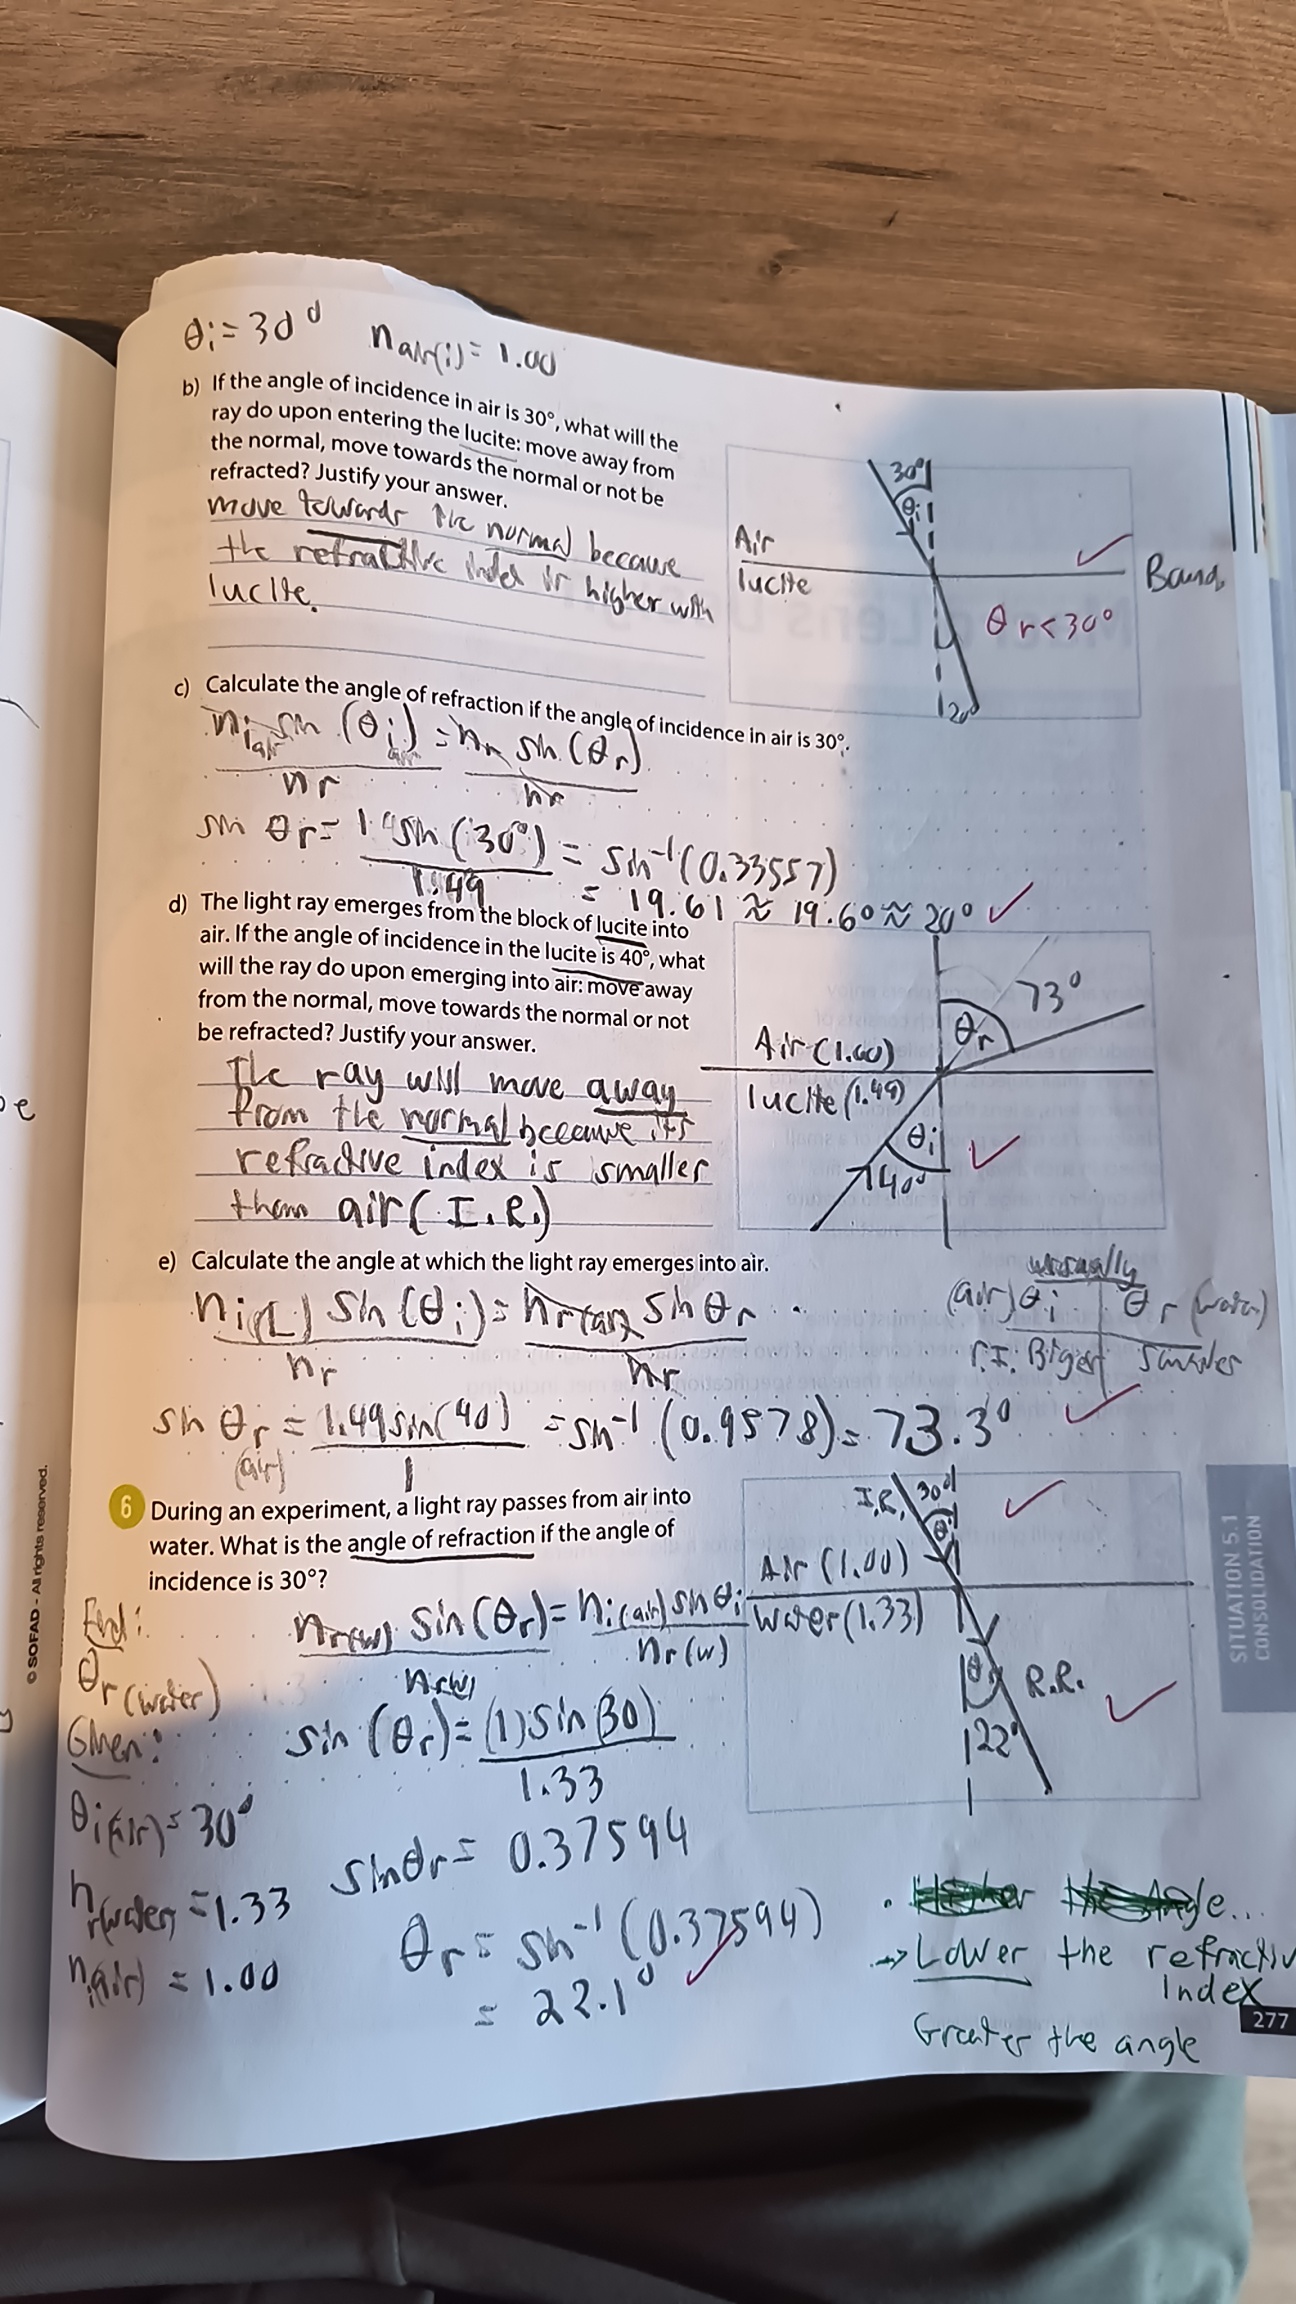 θi = 30° nair(i) = 1.00
b) If the angle of incidence in air is 30°, what will the
ray do upon entering the lucite: move away from
the normal, move towards the normal or not be
refracted? Justify your answer.
move towards the normal because
the refractive index is higher with
lucite.
30°
θi
Air
lucite
Bound
θr<30°
20°
c) Calculate the angle of refraction if the angle of incidence in air is 30°.
ni air sin (θi air) = nr sin (θr)
nr nr
sin θr = 1 sin (30°) = sin⁻¹(0.33557)
1.49
= 19.61 ≈ 19.60 ≈ 20°
d) The light ray emerges from the block of lucite into
air. If the angle of incidence in the lucite is 40°, what
will the ray do upon emerging into air: move away
from the normal, move towards the normal or not
be refracted? Justify your answer.
The ray will move away
from the normal because its
refractive index is smaller
than air (I.R.)
73°
θr
Air (1.00)
lucite (1.49)
θi
40°
e) Calculate the angle at which the light ray emerges into air.
ni(L) sin (θi) = nr(air) sin θr
nr nr
(air) θi θr (water)
r.I. Biger Smaller
sin θr = 1.49 sin(40) = sin⁻¹ (0.9578) = 73.3°
(air) 1
6 During an experiment, a light ray passes from air into
water. What is the angle of refraction if the angle of
incidence is 30°?
I.R. 30°
θi
Air (1.00)
water (1.33)
θr R.R.
22°
Find:
θr (water)
Given:
θi(air) = 30°
nr(water) = 1.33
ni(air) = 1.00
nr(w) sin (θr) = ni(air) sin θi
nr(w) nr(w)
sin (θr) = (1) sin (30)
1.33
sin θr = 0.37594
θr = sin⁻¹ (0.37594)
= 22.1°
→ Lower the refractiv
Index
Greater the angle
277
SITUATION 5.1
CONSOLIDATION
© SOFAD - All rights reserved.